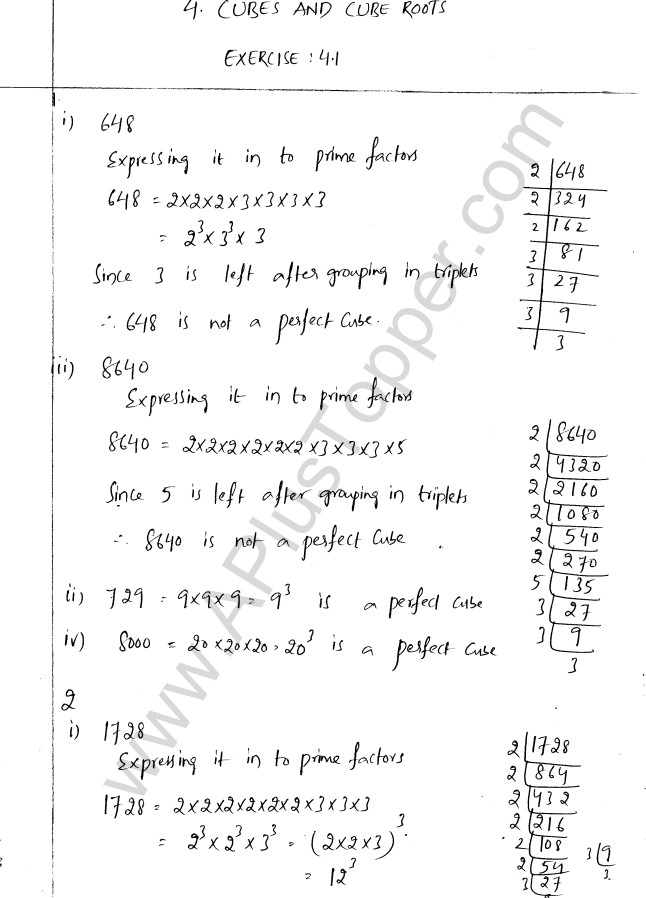 4. CUBES AND CUBE ROOTS
EXERCISE : 4.1
i) 648
Expressing it in to prime factors
648 = 2×2×2×3×3×3×3
= 2³×3³×3
Since 3 is left after grouping in triplets
∴ 648 is not a perfect Cube.
2 | 648
2 | 324
2 | 162
3 | 81
3 | 27
3 | 9
3
ii) 8640
Expressing it in to prime factors
8640 = 2×2×2×2×2×2×3×3×3×5
Since 5 is left after grouping in triplets
∴ 8640 is not a perfect Cube .
2 | 8640
2 | 4320
2 | 2160
2 | 1080
2 | 540
2 | 270
5 | 135
3 | 27
3 | 9
3
ii) 729 = 9×9×9 = 9³ is a perfect cube
iv) 8000 = 20×20×20 = 20³ is a perfect Cube
2
i) 1728
Expressing it in to prime factors
1728 = 2×2×2×2×2×2×3×3×3
= 2³×2³×3³ = (2×2×3)³
= 12³
2 | 1728
2 | 864
2 | 432
2 | 216
2 | 108
2 | 54
3 | 27
3 | 9
3
www.APlusTopper.com